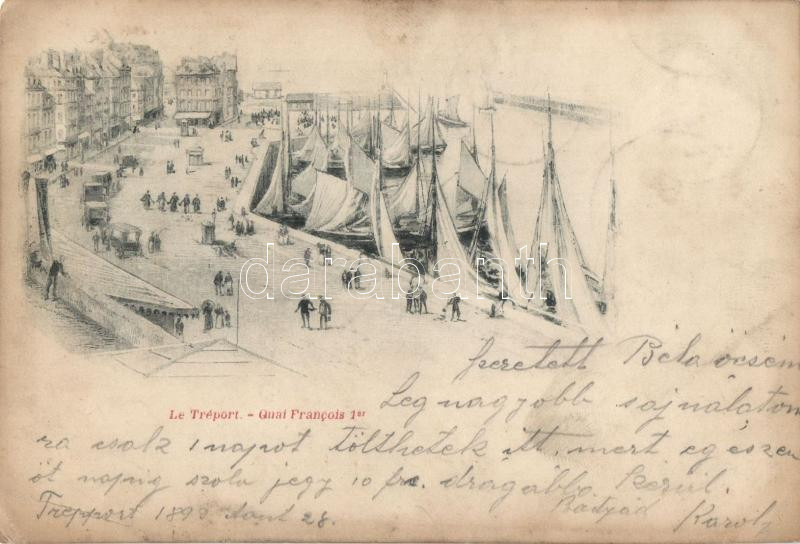 Le Tréport. - Quai François 1er
Szeretett Béla öcsém
Legnagyobb sajnálatom
ra csak 1 napot tölthetek itt, mert egészen
öt napig szoló jegy 10 frc. dragábba kerül.
Trepport 1898 Aout 28.
Bátyád Karoly
darabanth